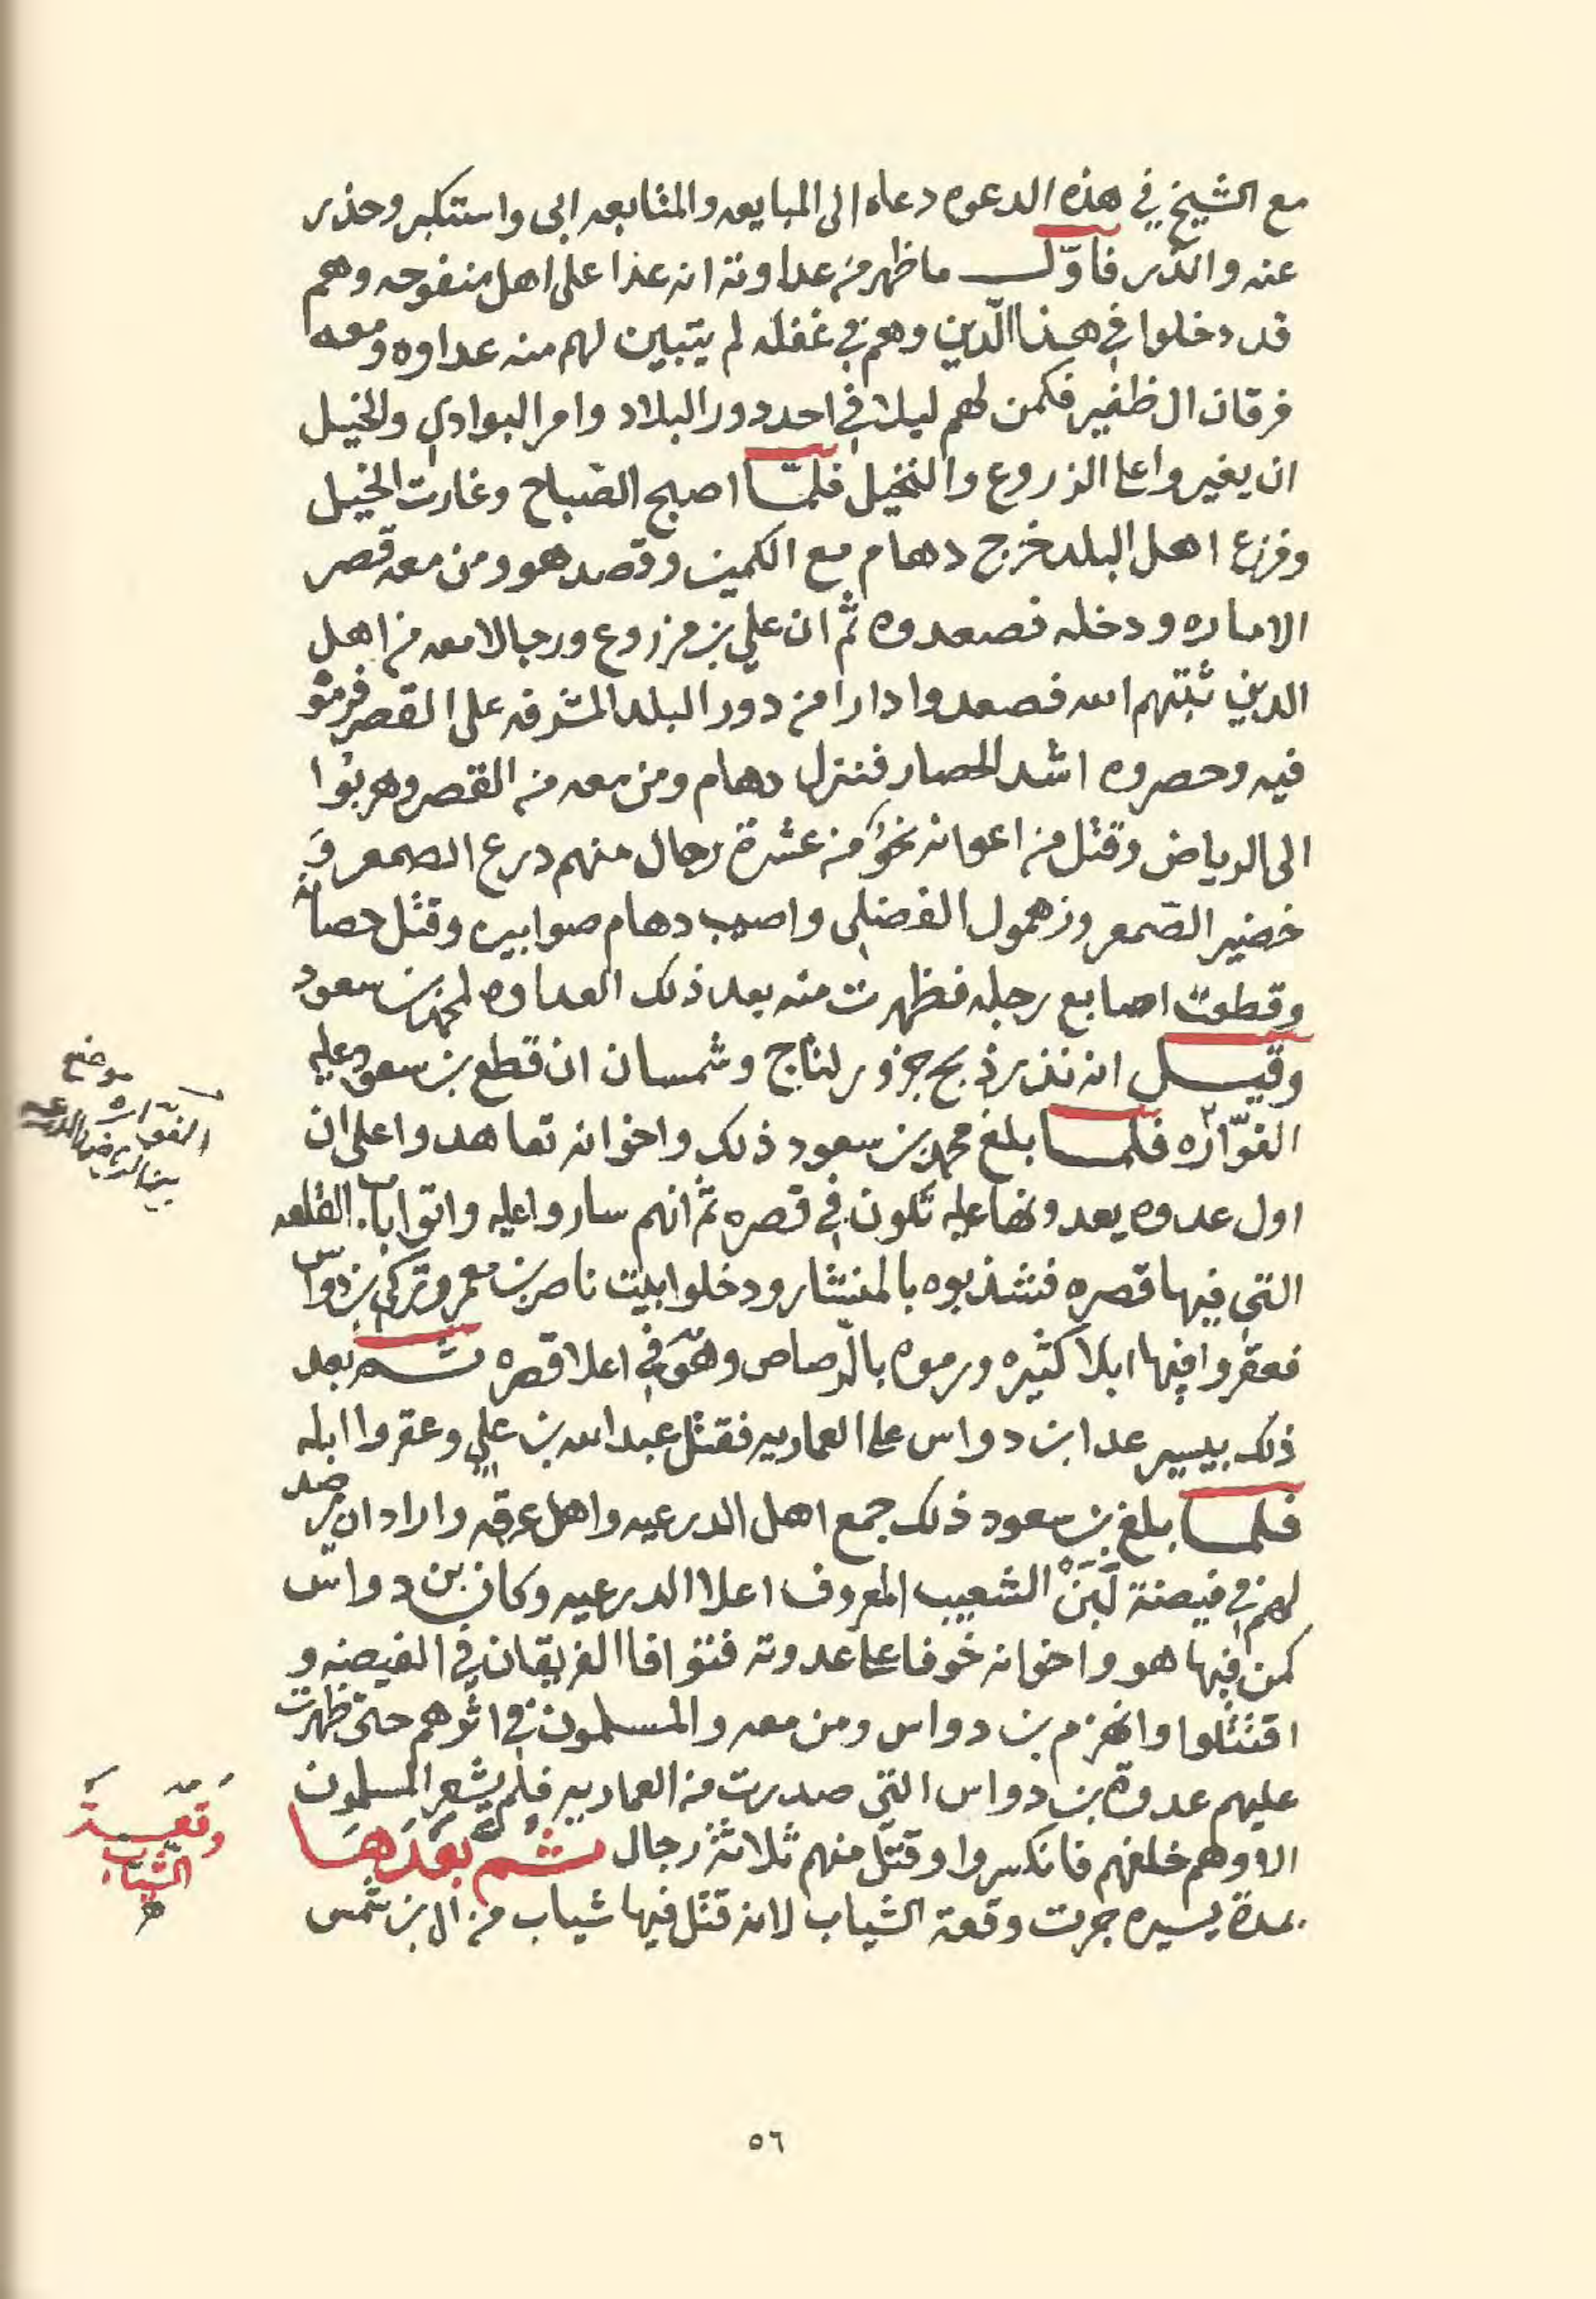 مع الشيخ في هذه الدعوه دعاه الى المبايعه والمتابعه ابى واستكبر وحذر
عنه وانذر فاوّل ما ظهر من عداوته انه عدا على اهل منفوحه وهم
قد دخلوا في هذا الدّين وهم في غفله لم يتبين لهم منه عداوه ومعه
فرقان ال ظفير فكمن لهم ليلا في احد دور البلاد وامر البوادي والخيل
ان يغيروا على الزروع والنخيل فلمّا اصبح الصّباح وغارت الخيل
وفزع اهل البلد خرج دهام مع الكمين وقصد هو ومن معه قصر
الاماره ودخله فصعدوه ثم ان علي بن مزروع ورجالا معه من اهل
الدين ثبتهم الله فصعدوا دارا من دور البلد المشرفه على القصر فرموا
فيه وحصروه اشد الحصار فنزل دهام ومن معه من القصر وهربوا
الى الرياض وقتل من اعوانه نحو من عشرة رجال منهم درع الصمعر و
خضير الصّمعر وزهمول الفضلي واصيب دهام صوابين وقتل حصانه
وقطعت اصابع رجله فظهرت منه بعد ذلك العداوه لمحمد بن سعود
وقيل انه نذر ذبح جزور لتاج وشمسان ان قطع بن سعود عليه
الفوّاره فلما بلغ محمد بن سعود ذلك واخوانه تعاهدوا على ان
اول عدوه يعدونها عليه تكون في قصره ثم انهم ساروا عليه واتوا باب القلعه
التي فيها قصره فشذبوه بالمنشار ودخلوا بيت ناصر بن معمر وتركي بن دواس
فعقروا فيها ابلا كثيره ورموه بالرّصاص وهو في اعلا قصره ثم بعد
ذلك بيسير عدا ابن دواس على العماريه فقتل عبدالله بن علي وعقروا ابله
فلما بلغ بن سعود ذلك جمع اهل الدرعيه واهل عرقه واراد ان يرصد
لهم في فيضة لَبَن الشعيب المعروف اعلا الدرعيه وكان بن دواس
كمن فيها هو واخوانه خوفا على عدوته فتوافا الفريقان في الفيضه و
اقتتلوا وانهزم بن دواس ومن معه والمسلمون في اثرهم حتى ظهرت
عليهم عدوة بن دواس التي صدرت من العماريه فلم يشعر المسلمون
الا وهم خلفهم فانكسروا وقتل منهم ثلاثة رجال ثم بعدها
بمدة يسيره جرت وقعة الشياب لانه قتل فيها شياب من ال بن شمس
موضع
الفوّاره
بين الرياض والدرعيه
وقعة
الشياب
٥٦